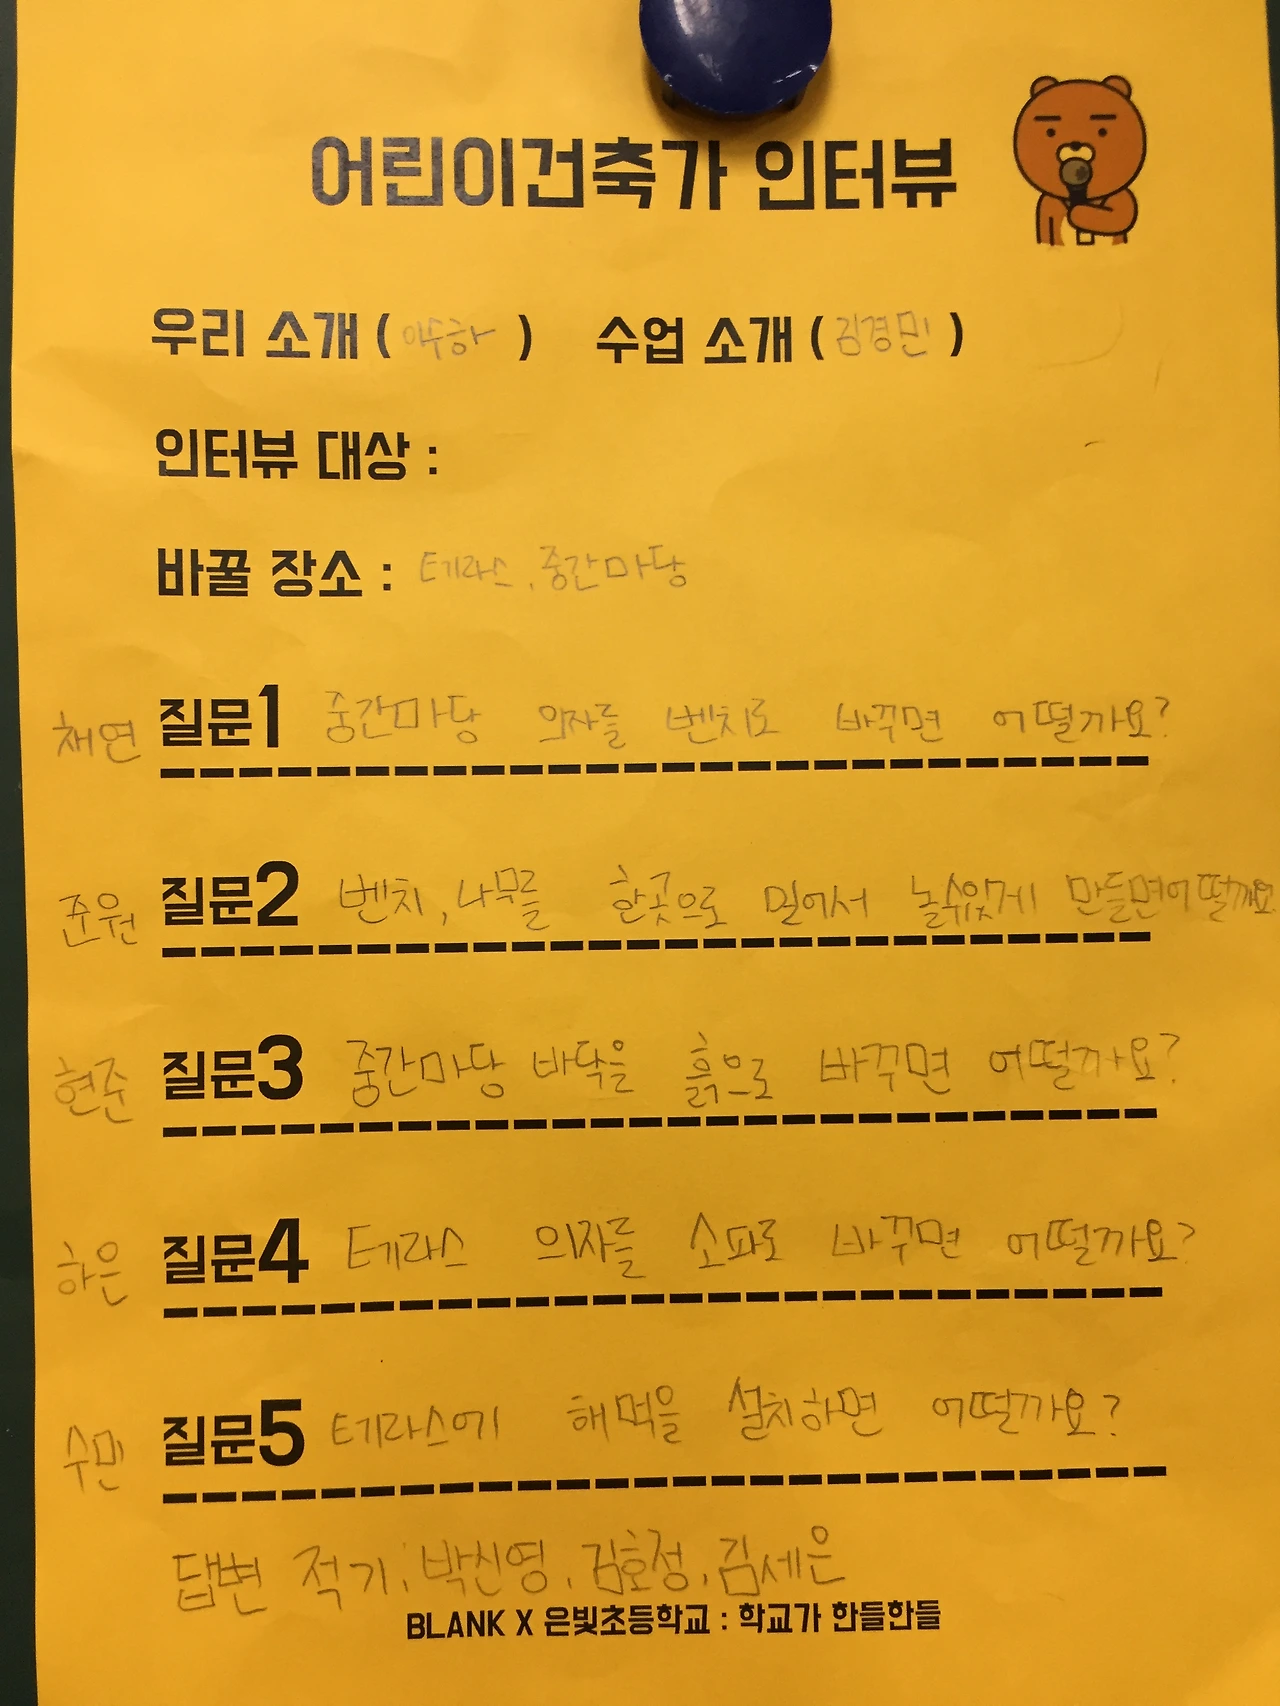 어린이건축가 인터뷰
우리 소개 ( ) 수업 소개 ( 김경민 )
인터뷰 대상 :
바꿀 장소 : 테라스, 중간마당
채연 질문1 중간마당 의자를 벤치로 바꾸면 어떨까요?
준원 질문2 벤치, 나무를 한곳으로 밀어서 놀수있게 만들면어떨까요
현준 질문3 중간마당 바닥을 흙으로 바꾸면 어떨까요?
하은 질문4 테라스 의자를 소파로 바꾸면 어떨까요?
수민 질문5 테라스에 해먹을 설치하면 어떨까요?
답변 적기: 박신영, 김호정, 김세은
BLANK X 은빛초등학교 : 학교가 한들한들